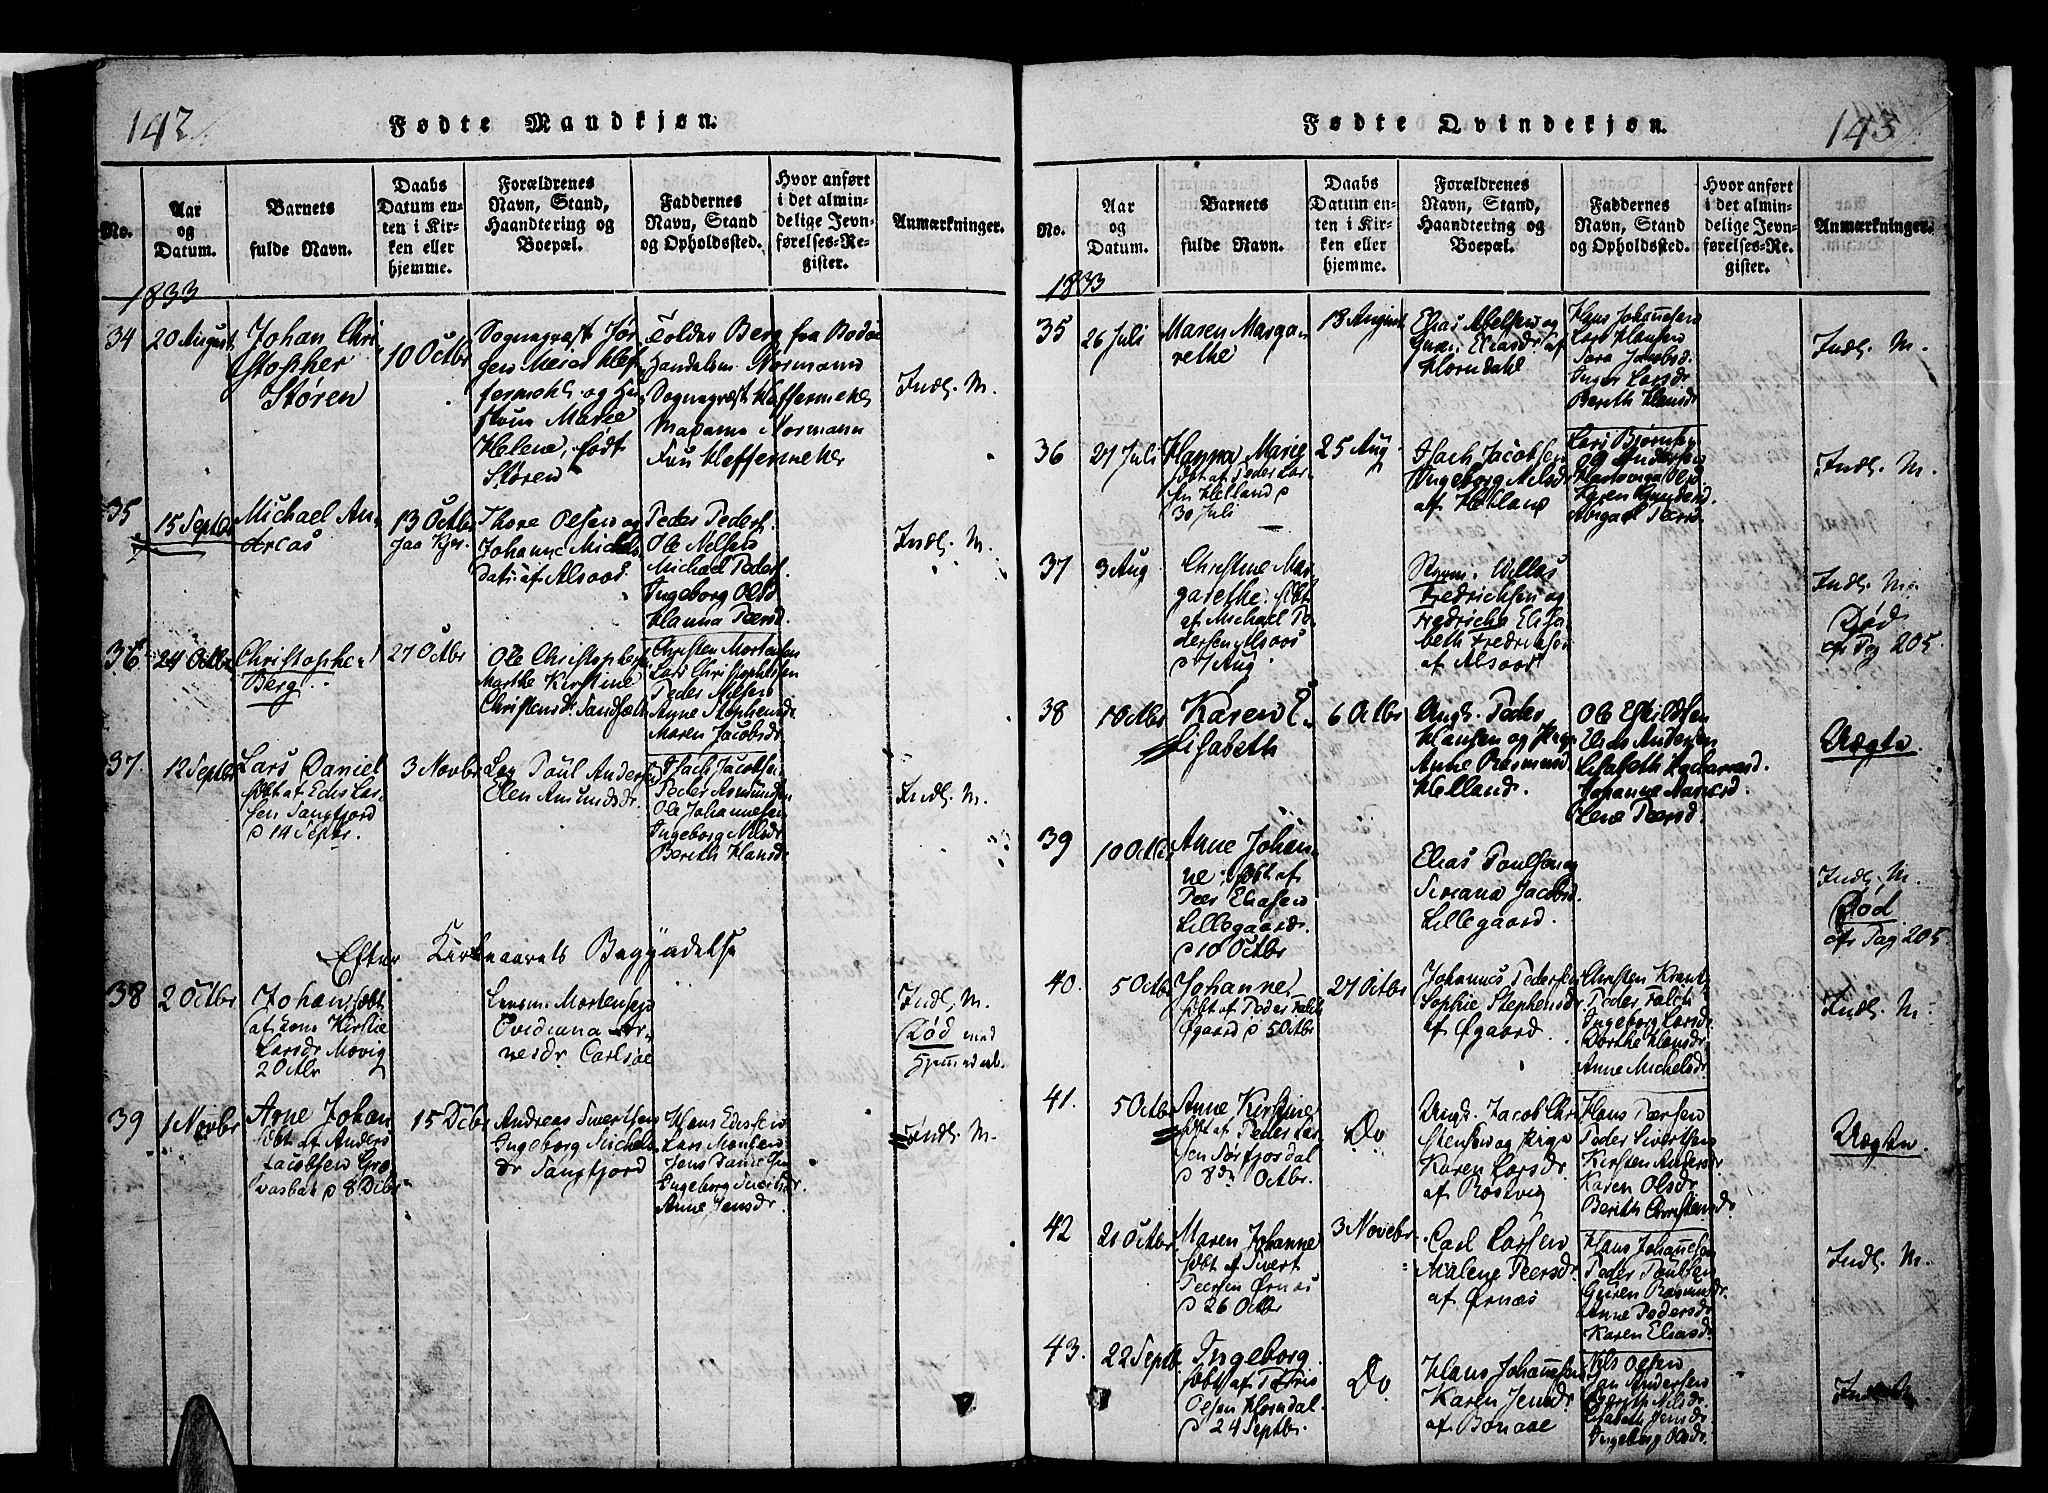 142
Fødte Mandkjøn.
No.
Aar
og
Datum.
Barnets
fulde Navn.
Daabs
Datum en-
ten i Kir-
ken eller
hjemme.
Forældrenes
Navn, Stand,
Haandtering og
Boepæl.
Faddernes
Navn, Stand
og Opholdssted.
Hvor anført
i det almin-
delige Jevn-
førelses-Re-
gister.
Anmærkninger.
1833
34
20 August
Johan Chri
stopher
Støren
10 Octbr
Sognepræst Jør
gen Meier
og Hu
stru Marie
Helene, født
Støren
Tolder Berg fra Bodøe
Normann
Sognepræst
Madame Normann
Fru
Indl. M.
35
15 Septbr
Michael An
dreas
13 Octbr
Thore Olsen og
Johanne Michels
datr af Alsoos
Peder Peders.
Ole Nelsen
Michael Peders.
Ingeborg Olsd
Hanna Peersd.
Indl. M.
36
24 Octbr
Christopher
Berg
27 Octbr
Ole Christophersen
Marthe Kirstine
Christensdr
Christen Mortensen
Lars Christophersen
Peder Nelsen
Anne Stephensdr
Maren Jacobsdr
37.
12 Septbr
Lars Daniel
døbt af
Sen Tangfjord
d 14 Septr.
3 Novbr
Paul Andersen
Elen Amundsdr.
Isach Jacobsen
Peder Asmundsen
Ole Johannesen
Ingeborg Nilsdr
Berith Hansdr
Indl. M.
Efter Kirkeaarets Begyndelse
38
2 Octbr
Johan, døbt
af Kirstie
Larsdr Movig
2 Octbr
Mortensen
Ovidiana
nesdr
Indl. M.
Død med
39
1 Novbr
Arne Johan
døbt af Anders
Jacobsen
d 8 Dcbr
15 Dcbr
Andreas Sivertsen
Ingeborg Michels
dr Tangfjord
Hans
Lars Monsen
Anne Jensdr
Indl. M.
143
Fødte Qvindekjøn.
No.
Aar
og
Datum.
Barnets
fulde Navn.
Daabs
Datum en-
ten i Kir-
ken eller
hjemme.
Forældrenes
Navn, Stand,
Haandtering og
Boepæl.
Faddernes
Navn, Stand
og Opholdssted.
Hvor anført
i det almin-
delige Jevn-
førelses-Re-
gister.
Anmærkninger.
1833
35
26 Juli
Maren Marga
rethe
18 August
Elias Abelsen og
Eliasdr af
Horndahl
Hans Johannesen
Lars Hansen
Sara Jacobsd.
Inger Larsdr
Berith Hansdr
Indl. M.
36
27 Juli
Hanna Marie
døbt af Peder Lar
sen Helland d
30 Juli
25 Aug
Isach Jacobsen
Ingeborg Nilsdr
af Helland
Lars Bjørnsen
Ole Andersen
Indl. M.
37
3 Aug
Christine Mar
garethe. døbt
af Michael Pe
dersen Alsoos
d 7 Aug
Willas
Fredrichsen og
Fredricha Elisa
beth Fredrichsen
af Alsoos
Indl. M.
Død
cfr Pag 205.
38
1 Octbr
Karen E
lisabeth
6 Octbr
Ungk. Peder
Hansen og Pige
Anne Rasmusd
Helland.
Ole Eskildsen
Elias Andersen
Lisabeth
Johanne
Olene Peersd.
Uægte.
39
10 Octbr
Anne Johan
ne, døbt af
Peer Eliasen
Lillegaard
d 10 Octbr
Elias Paulsen og
Siriana Jacobsd.
Lillegaard.
Indl. M.
Død
cfr Pag 205.
40.
5 Octbr
Johanne
døbt af Peder Falch
Øgaard d 5 Octbr
27 Octbr
Johannes Pedersen
Sophie Stephensdr
af Øgaard
Christen
Peder Falch
Ingeborg Larsdr
Dorthe Hansdr
Anne Michelsdr
Indl. M.
41.
5 Octbr
Anne Kirstine
døbt af Peder Lar
sen Sørfjordal
d 8de Octbr.
Do
Ungk. Jacob Chri
stensen og Pige
Karen Larsdr
af Rosvig
Hans Peersen
Peder Sivertsen
Kirsten Andersdr
Karen Olsdr
Berith Christensdr
Uægte.
42
21 Octbr
Maren Johanne
døbt af Sivert
Peersen Ørnæs
d 26 Octbr
3 Novebr.
Carl Larsen
Malene Peersdr
af Ørnæs
Hans Johannesen
Peder Paulsen
Guren Rasmusdr
Anne Pedersdr
Karen Eliasdr
Indl. M.
43.
22 Septb.
Ingeborg
døbt af
Olsen Horndal.
d 24 Septbr.
Do
Hans Johannesen
Karen Jensdr
af Bonaae
Nils Olsen
Jan Andersen
Nilsdr.
Lisabeth Jensdr
Ingeborg Olsdr